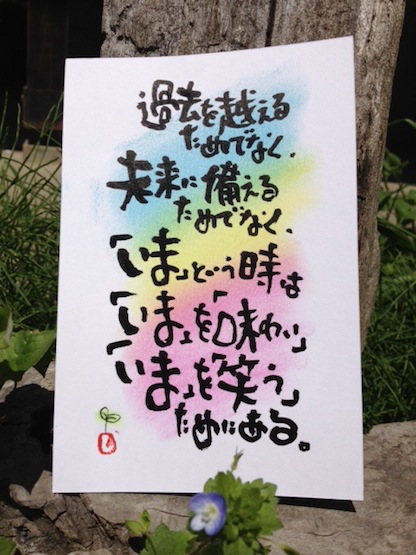 過去を越える
ためでなく、
未来に備える
ためでなく、
「いま」という時は
「いま」を「味わい」
「いま」を「笑う」
ためにある。